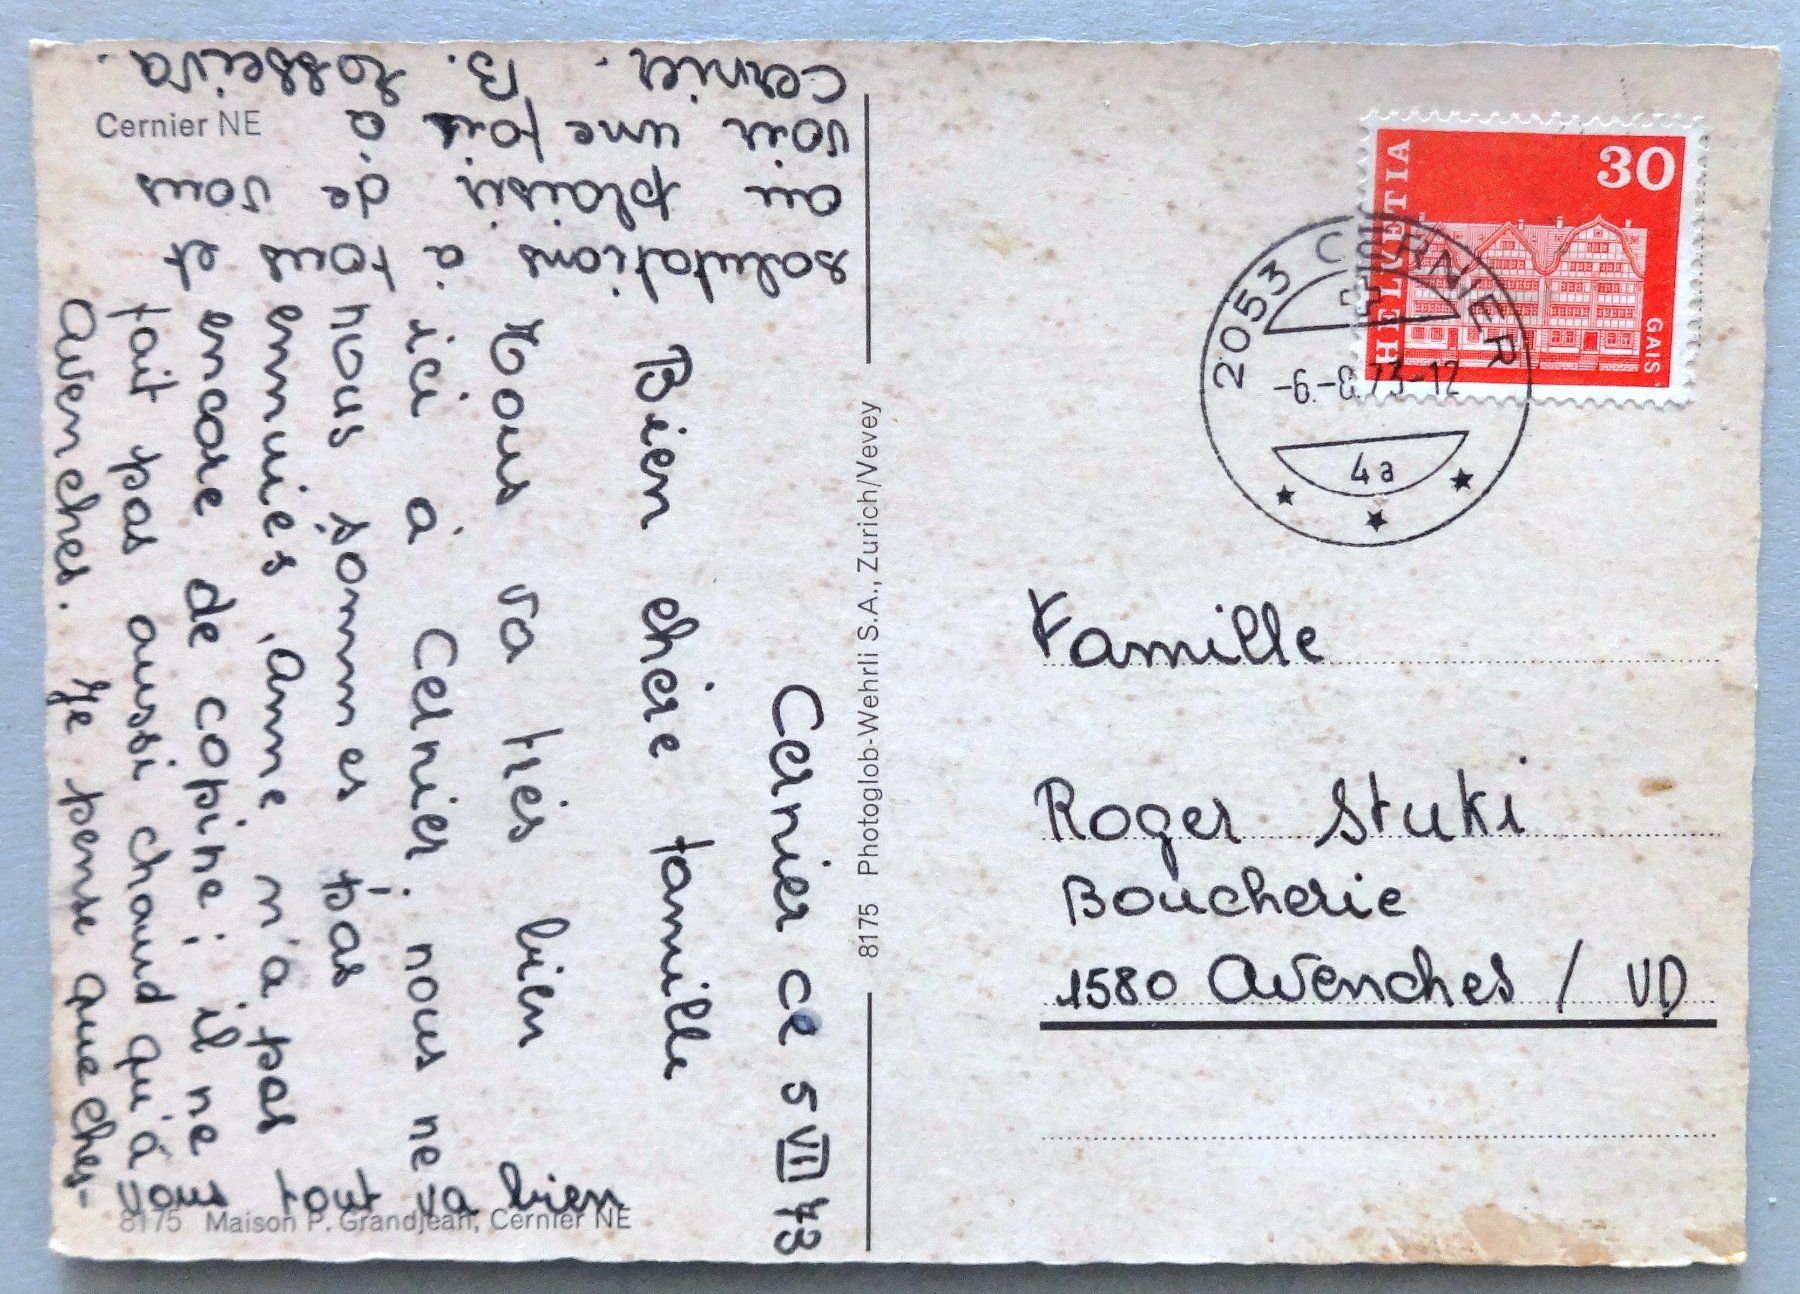 Cernier NE
Cernier ce 5 VII 73
Bien chère famille
Tous va très bien
ici à Cernier. nous ne
nous sommes pas
ennuiés, Anne n'a pas
encore de copine; il ne
fait pas aussi chaud qu'à
Avenches. Je pense que ches-
vous tout va bien
salutations à tous et
au plaisir de vous
voir une fois à
Cernier. B.
8175 Maison P. Grandjean, Cernier NE
8175 Photoglob-Wehrli S.A., Zurich/Vevey
HELVETIA
30
GAIS
2053 CERNIER
-6.-8.73-12
4a
Famille
Roger Stuki
Boucherie
1580 Avenches / VD